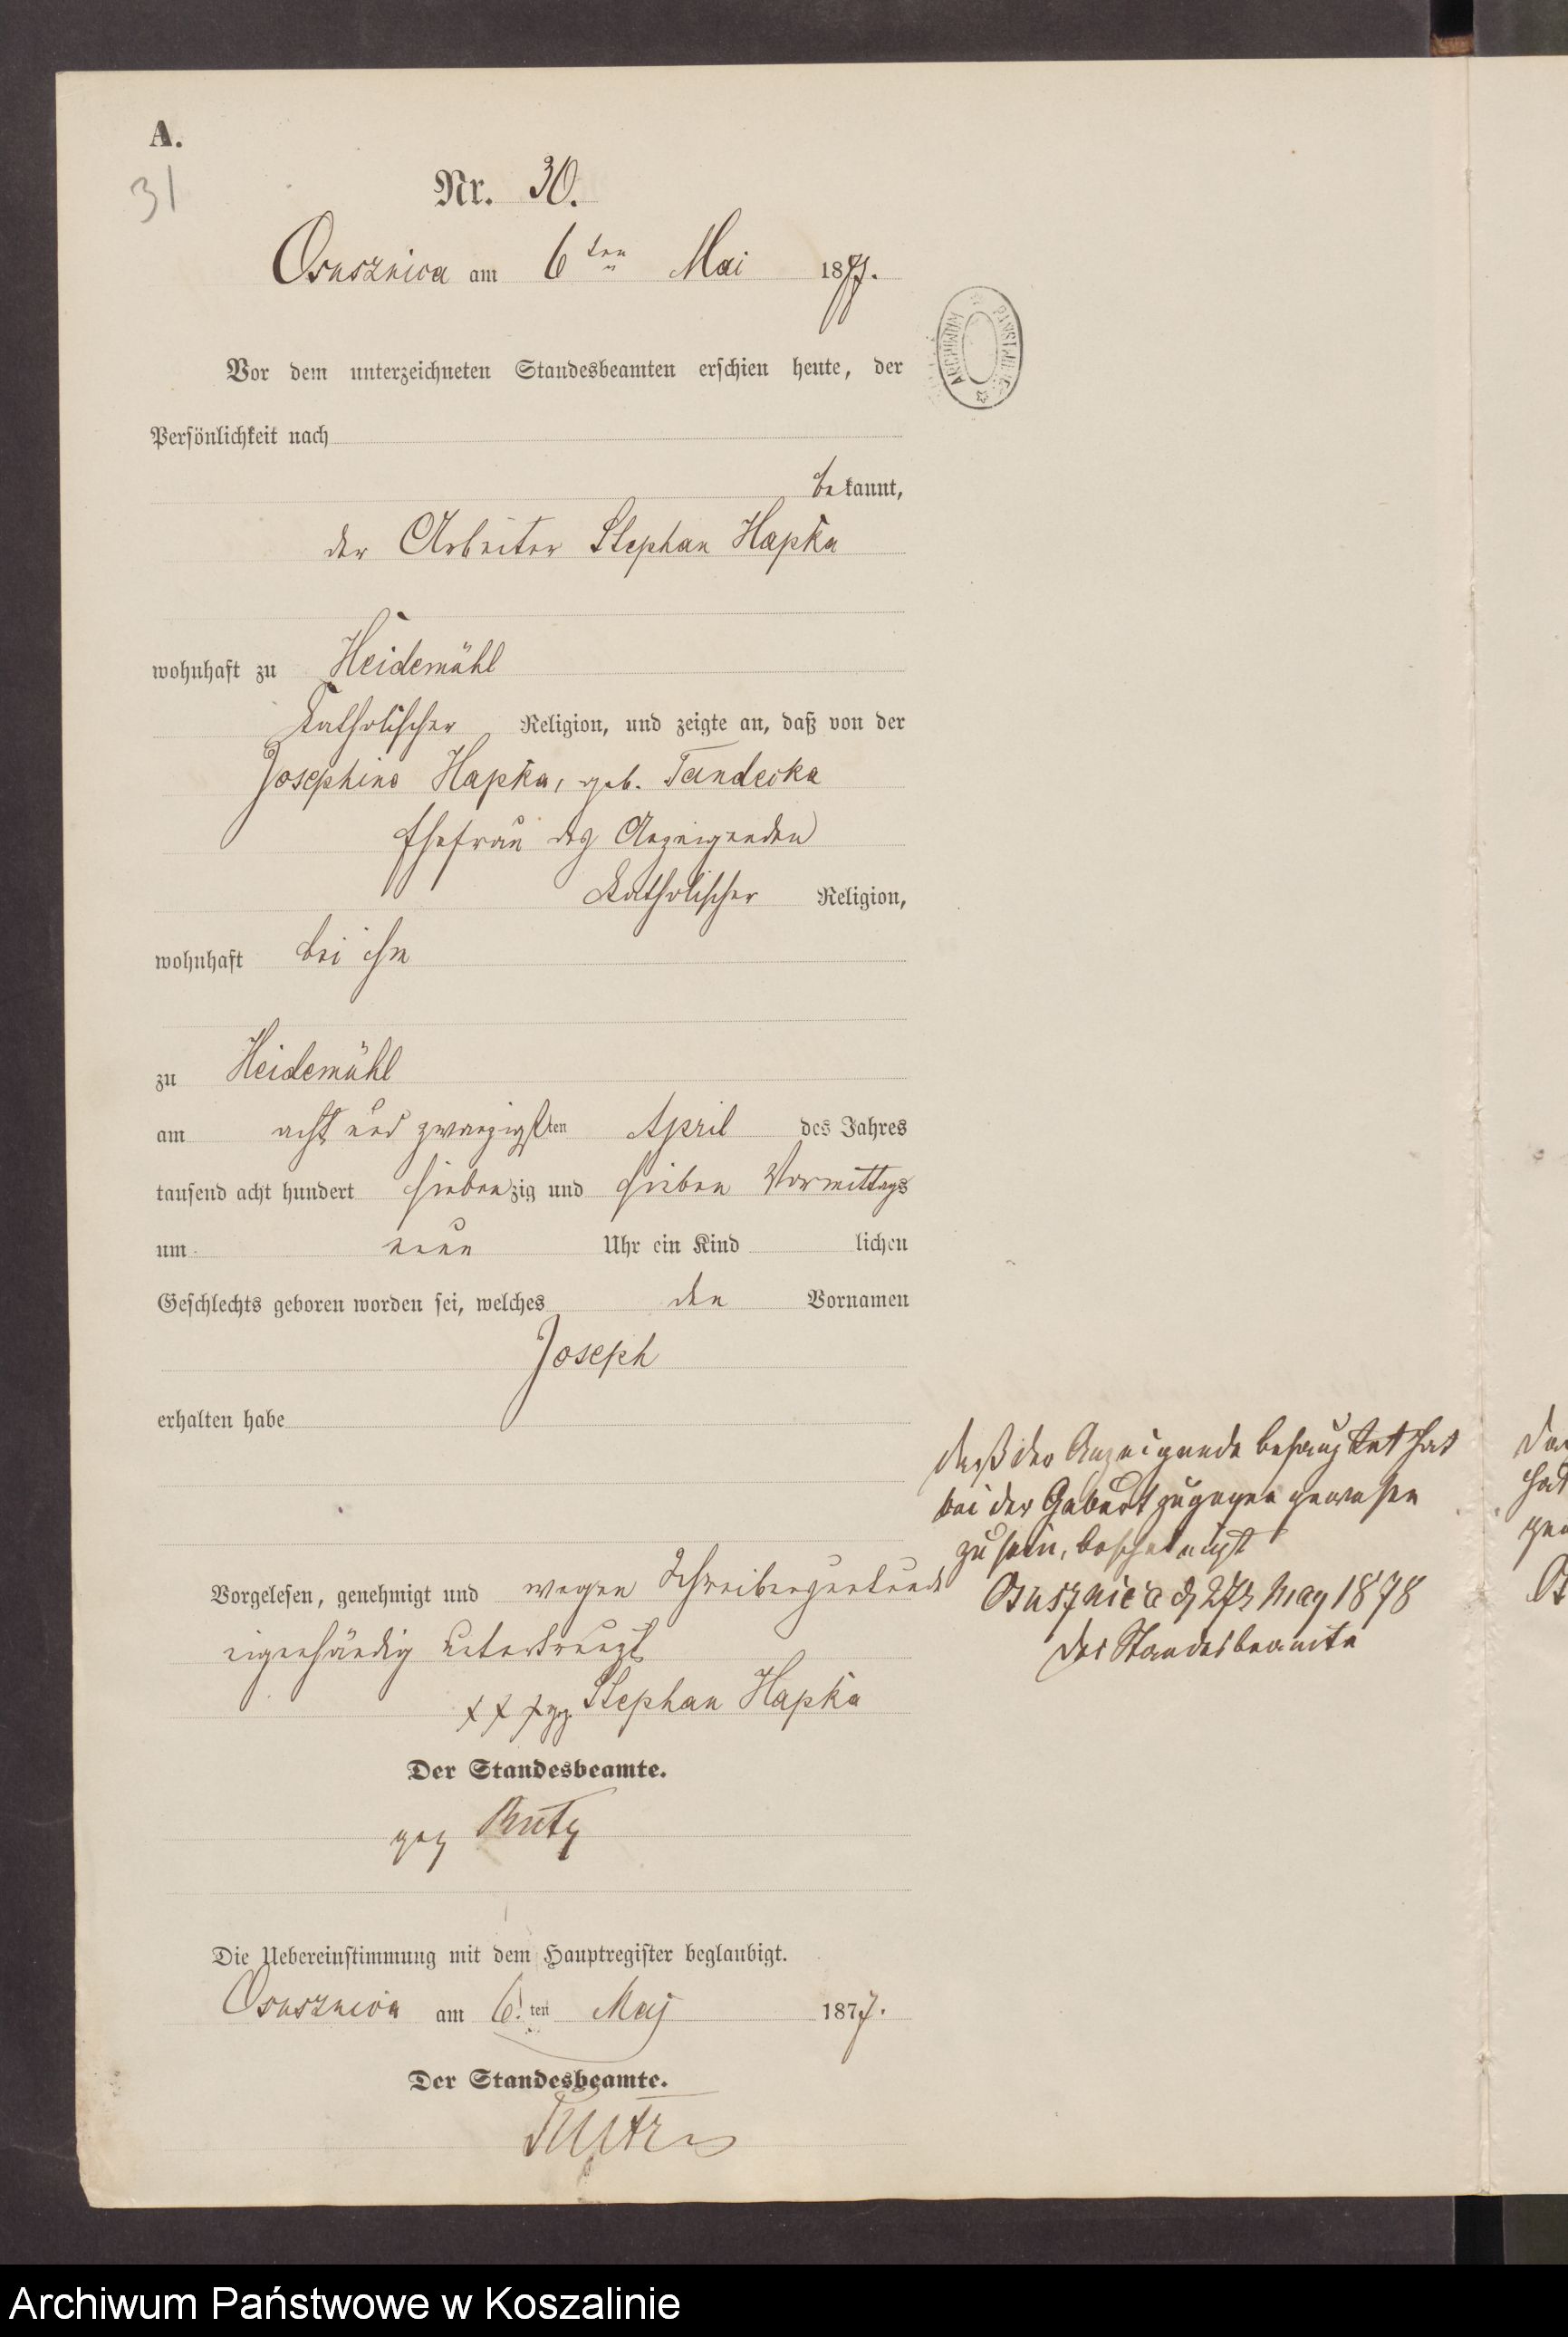 A.
31
Nr. 30.
Osusznica am 6ten Mai 1877.
Vor dem unterzeichneten Standesbeamten erschien heute, der
Persönlichkeit nach
bekannt,
der Arbeiter Stephan Hapka
wohnhaft zu Heidemühl
katholischer Religion, und zeigte an, daß von der
Josephine Hapka, geb. Tandecka
Ehefrau des Anzeigenden
katholischer Religion,
wohnhaft bei ihm
zu Heidemühl
am acht und zwanzigsten April des Jahres
tausend acht hundert siebenzig und sieben Vormittags
um neun Uhr ein Kind lichen
Geschlechts geboren worden sei, welches den Vornamen
Joseph
erhalten habe
daß der Anzeigende behauptet hat
bei der Geburt zugegen gewesen
zu sein, bescheinigt
Osusznica d 27t May 1878
Der Standesbeamte
Vorgelesen, genehmigt und wegen Schreibensunkunde
eigenhändig unterkreuzt
x x x gez. Stephan Hapka
Der Standesbeamte.
gez
Die Uebereinstimmung mit dem Hauptregister beglaubigt.
Osusznica am 6.ten Maj 1877.
Der Standesbeamte.
Archiwum Państwowe w Koszalinie